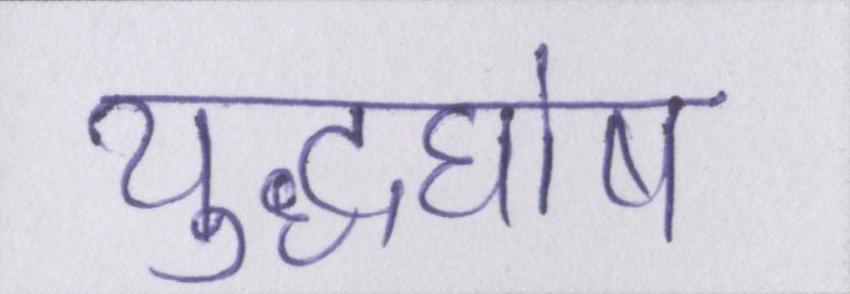 युद्धघोष